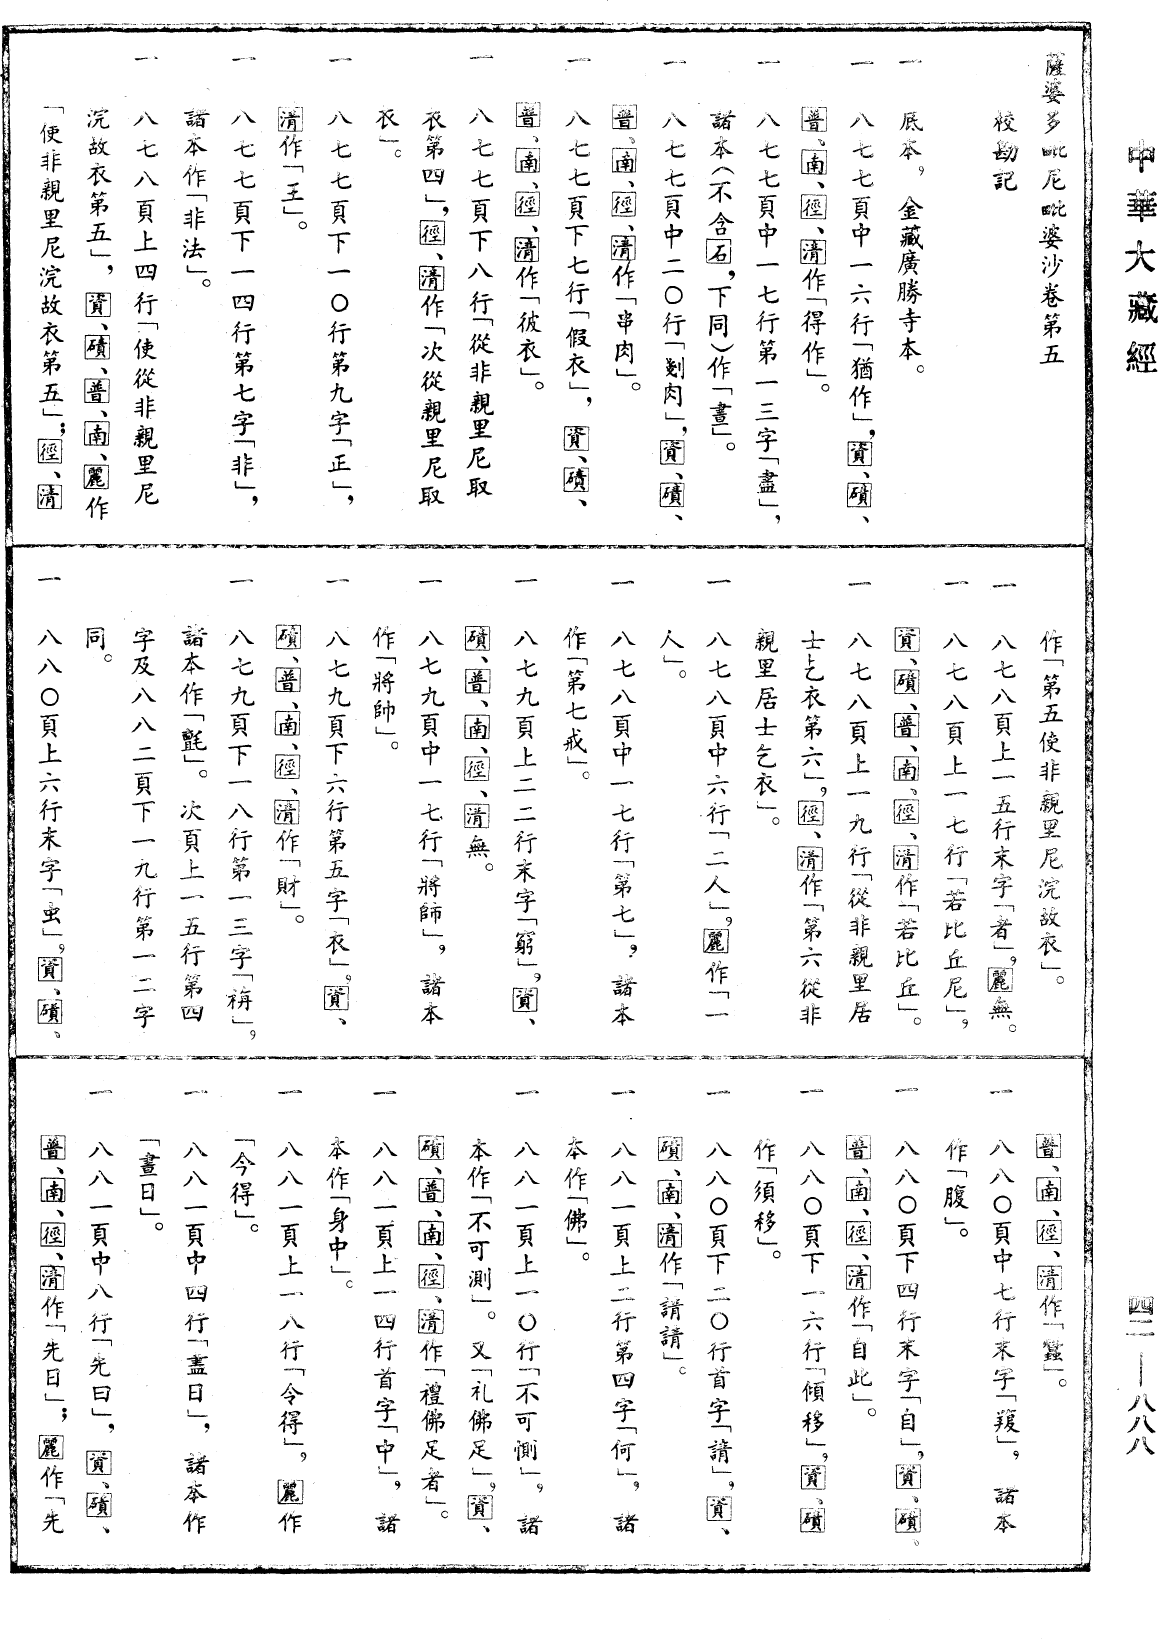 中華大藏經
四二——八八八
薩婆多毗尼毗婆沙卷第五
校勘記
一　底本，金藏廣勝寺本。
一　八七七頁中一六行「猶作」，資、磧、
普、南、徑、清作「得作」。
一　八七七頁中一七行第一三字「盡」，
諸本（不含石，下同）作「晝」。
一　八七七頁中二〇行「剗肉」，資、磧、
普、南、徑、清作「串肉」。
一　八七七頁下七行「假衣」，資、磧、
普、南、徑、清作「彼衣」。
一　八七七頁下八行「從非親里尼取
衣第四」，徑、清作「次從親里尼取
衣」。
一　八七七頁下一〇行第九字「正」，
清作「王」。
一　八七七頁下一四行第七字「非」，
諸本作「非法」。
一　八七八頁上四行「使從非親里尼
浣故衣第五」，資、磧、普、南、麗作
「使非親里尼浣故衣第五」；徑、清
作「第五使非親里尼浣故衣」。
一　八七八頁上一五行末字「者」，麗無。
一　八七八頁上一七行「若比丘尼」，
資、磧、普、南、徑、清作「若比丘」。
一　八七八頁上一九行「從非親里居
士乞衣第六」，徑、清作「第六從非
親里居士乞衣」。
一　八七八頁中六行「二人」，麗作「一
人」。
一　八七八頁中一七行「第七」，諸本
作「第七戒」。
一　八七九頁上二二行末字「窮」，資、
磧、普、南、徑、清無。
一　八七九頁中一七行「將師」，諸本
作「將帥」。
一　八七九頁下六行第五字「衣」。資、
磧、普、南、徑、清作「財」。
一　八七九頁下一八行第一三字「栴」，
諸本作「㲲」。次頁上一五行第四
字及八八二頁下一九行第一二字
同。
一　八八〇頁上六行末字「虫」，資、磧、
普、南、徑、清作「蠶」。
一　八八〇頁中七行末字「羖」，諸本
作「腹」。
一　八八〇頁下四行末字「自」，資、磧。
普、南、徑、清作「自此」。
一　八八〇頁下一六行「傾移」，資、磧
作「須移」。
一　八八〇頁下二〇行首字「請」，資、
磧、南、清作「請請」。
一　八八一頁上二行第四字「何」，諸
本作「佛」。
一　八八一頁上一〇行「不可惻」，諸
本作「不可測」。又「礼佛足」，資、
磧、普、南、徑、清作「禮佛足者」。
一　八八一頁上一四行首字「中」，諸
本作「身中」。
一　八八一頁上一八行「令得」，麗作
「今得」。
一　八八一頁中四行「盡日」，諸本作
「晝日」。
一　八八一頁中八行「先曰」，資、磧、
普、南、徑、清作「先日」；麗作「先